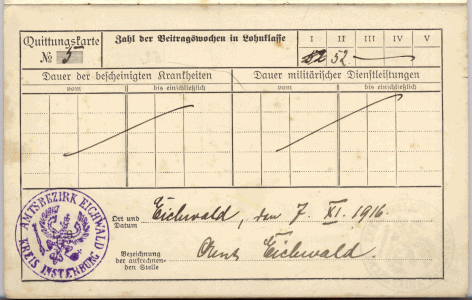 Quittungskarte
№ 5
Zahl der Beitragswochen in Lohnklasse
I II III IV V
52 52
Dauer der bescheinigten Krankheiten
Dauer militärischer Dienstleistungen
vom bis einschließlich vom bis einschließlich
Ort und Datum
Eichwald, den 7. XI. 1916.
Bezeichnung
der aufrechnen-
den Stelle
Amt Eichwald.
AMTSBEZIRK EICHWALD
KREIS INSTERBURG